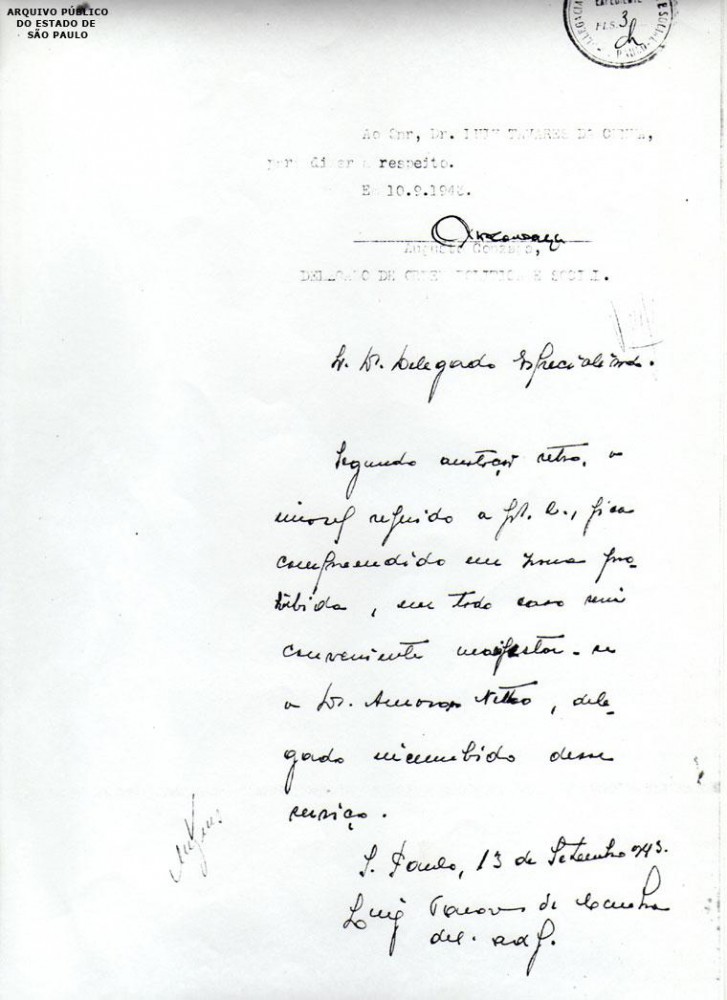 ARQUIVO PÚBLICO
DO ESTADO DE
SÃO PAULO
FLS. 3
Ao Snr, Dr. LUIZ TAVARES DA CUNHA,
para dizer a respeito.
Em 10.9.1943.
Augusto Gonzaga,
DELEGADO DE ORDEM POLITICA E SOCIAL.
Sr. Dr. Delegado Especialisado.
Segundo retro, o
imovel referido a fl. 2, fica
compreendido em zona pro-
hibida, em todo caso seria
conveniente manifestar-se
o Dr. Amoroso Netto, dele-
gado incumbido desse
serviço.
S. Paulo, 13 de Setembro 943.
Luiz Tavares da Cunha
del. adj.